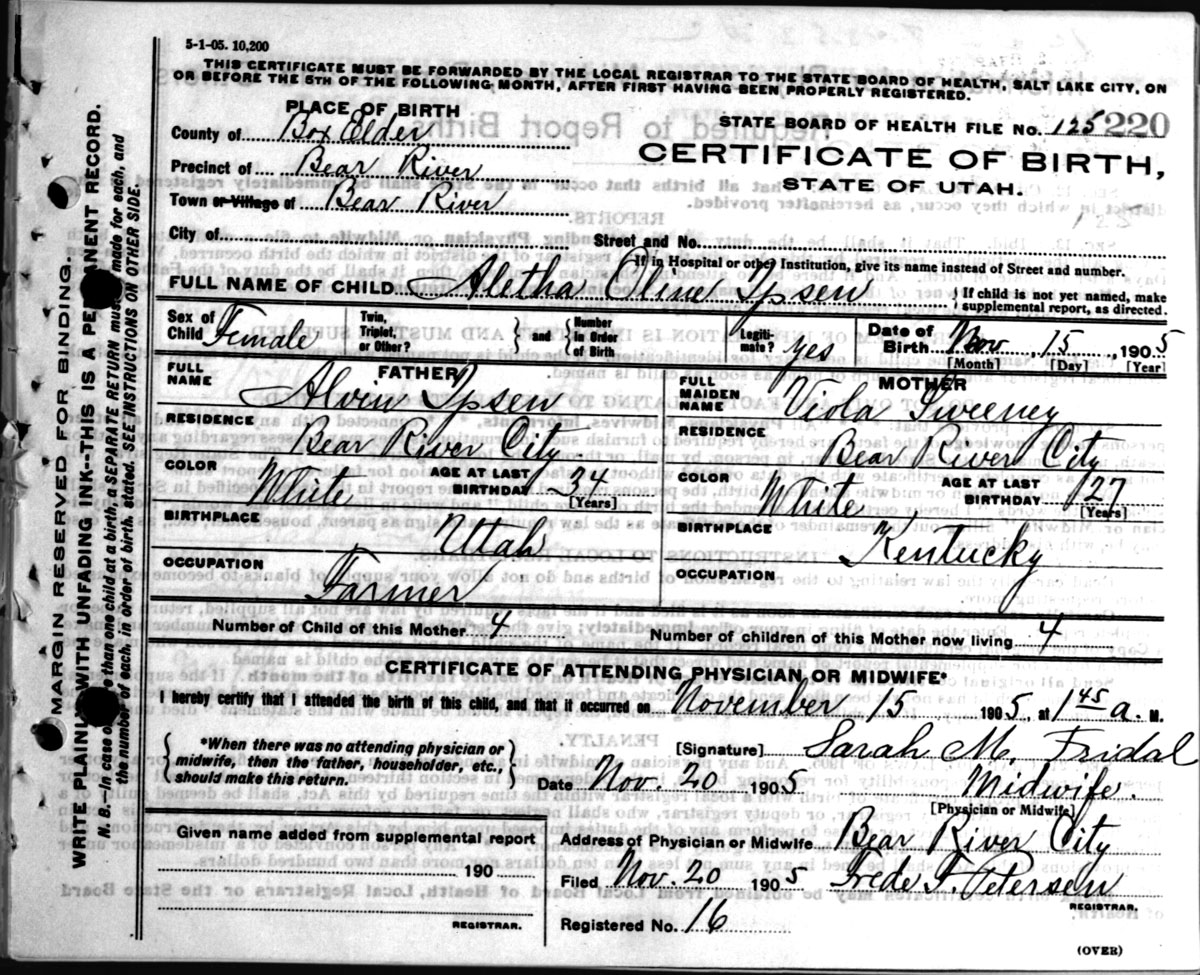 5-1-05. 10,200
THIS CERTIFICATE MUST BE FORWARDED BY THE LOCAL REGISTRAR TO THE STATE BOARD OF HEALTH, SALT LAKE CITY, ON
OR BEFORE THE 5TH OF THE FOLLOWING MONTH, AFTER FIRST HAVING BEEN PROPERLY REGISTERED.
PLACE OF BIRTH
County of Box Elder
Precinct of Bear River
Town or Village of Bear River
STATE BOARD OF HEALTH FILE No. 125 220
CERTIFICATE OF BIRTH,
STATE OF UTAH.
125
City of Street and No.
If in Hospital or other Institution, give its name instead of Street and number.
FULL NAME OF CHILD Aletha Oline Ipsen { If child is not yet named, make
supplemental report, as directed.
Sex of Child Female
Twin, Triplet, or Other? } and { Number in Order of Birth
Legiti-mate? yes
Date of Birth Nov 15, 1905
[Month] [Day] [Year]
FATHER
FULL NAME Alvin Ipsen
RESIDENCE Bear River City.
COLOR White AGE AT LAST BIRTHDAY 34
[Years]
BIRTHPLACE Utah
OCCUPATION Farmer
MOTHER
FULL MAIDEN NAME Viola Sweeney
RESIDENCE Bear River City
COLOR White AGE AT LAST BIRTHDAY 27
[Years]
BIRTHPLACE Kentucky
OCCUPATION
Number of Child of this Mother 4 Number of children of this Mother now living 4
CERTIFICATE OF ATTENDING PHYSICIAN OR MIDWIFE*
I hereby certify that I attended the birth of this child, and that it occurred on November 15 1905, at 1 45 a. M.
{ *When there was no attending physician or
midwife, then the father, householder, etc.,
should make this return. }
[Signature] Sarah M. Fridal
Date Nov. 20 1905 Midwife.
[Physician or Midwife]
Given name added from supplemental report
190
REGISTRAR.
Address of Physician or Midwife Bear River City
Filed Nov. 20 1905 Frede F. Petersen
REGISTRAR.
Registered No. 16
(OVER)
MARGIN RESERVED FOR BINDING.
WRITE PLAINLY WITH UNFADING INK--THIS IS A PERMANENT RECORD.
N. B.--In case of more than one child at a birth, a SEPARATE RETURN must be made for each, and
the number of each, in order of birth, stated. SEE INSTRUCTIONS ON OTHER SIDE.